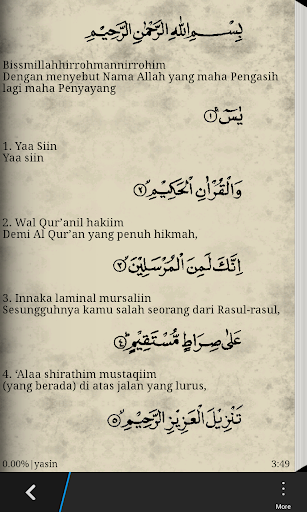 بِسْمِ اللهِ الرَّحْمٰنِ الرَّحِيْمِ
Bissmillahhirrohmannirrohim
Dengan menyebut Nama Allah yang maha Pengasih
lagi maha Penyayang
يٰسٓ ۝١
1. Yaa Siin
Yaa siin
وَالْقُرْاٰنِ الْحَكِيْمِ ۝٢
2. Wal Qur’anil hakiim
Demi Al Qur’an yang penuh hikmah,
اِنَّكَ لَمِنَ الْمُرْسَلِيْنَ ۝٣
3. Innaka laminal mursaliin
Sesungguhnya kamu salah seorang dari Rasul-rasul,
عَلٰى صِرَاطٍ مُّسْتَقِيْمٍ ۝٤
4. ‘Alaa shirathim mustaqiim
(yang berada) di atas jalan yang lurus,
تَنْزِيْلَ الْعَزِيْزِ الرَّحِيْمِ ۝٥
0.00%|yasin 3:49
More